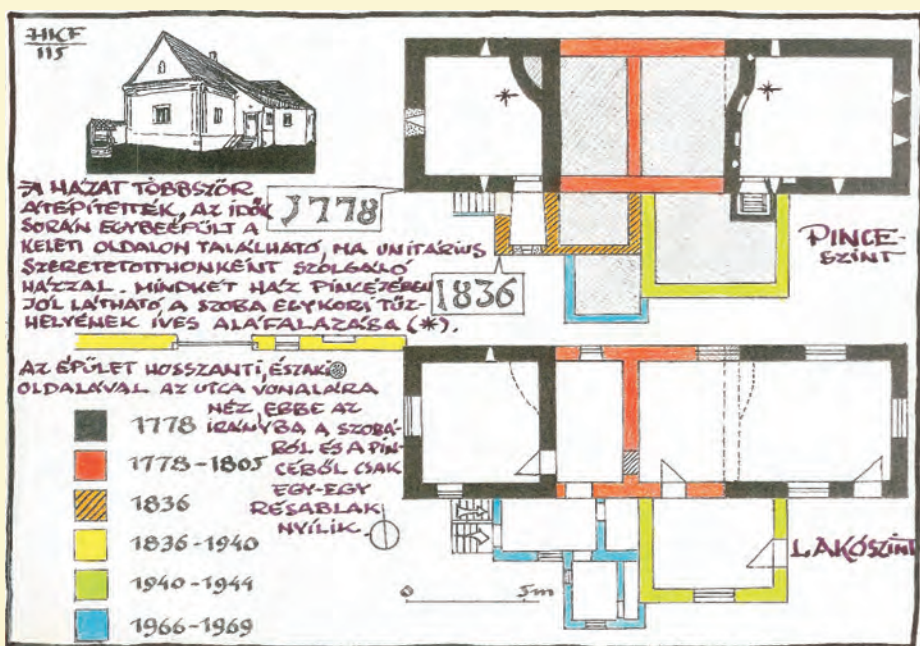 HKF
115
A HÁZAT TÖBBSZÖR
ÁTÉPÍTETTÉK, AZ IDŐK
SORÁN EGYBEÉPÜLT A
KELETI OLDALON TALÁLHATÓ, MA UNITÁRIUS
SZERETETOTTHONKÉNT SZOLGÁLÓ
HÁZZAL. MINDKÉT HÁZ PINCÉJÉBEN
JÓL LÁTHATÓ A SZOBA EGYKORI TŰZ-
HELYÉNEK ÍVES ALÁFALAZÁSA (*).
1778
1836
PINCE-
SZINT
AZ ÉPÜLET HOSSZANTI, ÉSZAKI
OLDALÁVAL AZ UTCA VONALÁRA
NÉZ, EBBE AZ
IRÁNYBA A SZOBÁ-
BÓL ÉS A PIN-
CÉBŐL CSAK
EGY-EGY
RÉSABLAK
NYÍLIK.
1778
1778-1805
1836
1836-1940
1940-1944
1966-1969
0 5m
LAKÓSZINT